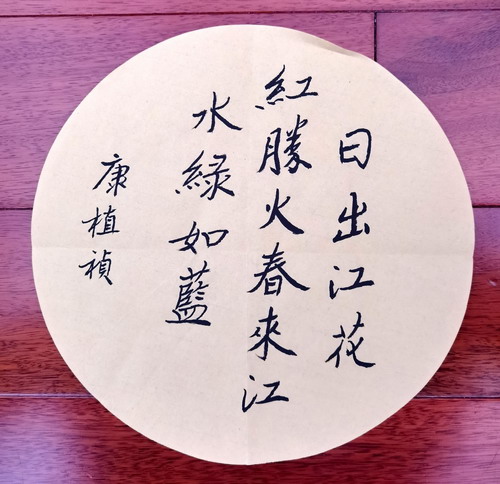 日出江花
紅勝火春來江
水綠如藍
康植禎